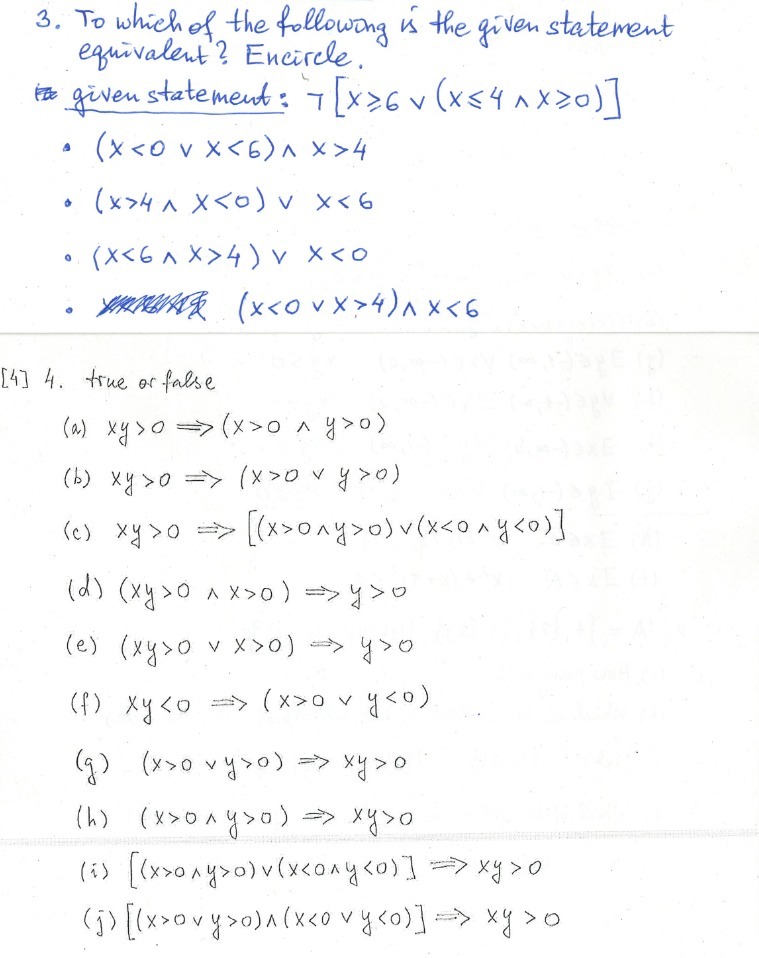 3. To which of the following is the given statement
equivalent? Encircle.
given statement: ¬[x≥6 ∨ (x≤4 ∧ x≥0)]
• (x<0 ∨ x<6) ∧ x>4
• (x>4 ∧ x<0) ∨ x<6
• (x<6 ∧ x>4) ∨ x<0
• (x<0 ∨ x>4) ∧ x<6
[4] 4. true or false
(a) xy>0 ⟹ (x>0 ∧ y>0)
(b) xy>0 ⟹ (x>0 ∨ y>0)
(c) xy>0 ⟹ [(x>0∧y>0)∨(x<0∧y<0)]
(d) (xy>0 ∧ x>0) ⟹ y>0
(e) (xy>0 ∨ x>0) ⟹ y>0
(f) xy<0 ⟹ (x>0 ∨ y<0)
(g) (x>0 ∨ y>0) ⟹ xy>0
(h) (x>0 ∧ y>0) ⟹ xy>0
(i) [(x>0∧y>0)∨(x<0∧y<0)] ⟹ xy>0
(j) [(x>0∨y>0)∧(x<0∨y<0)] ⟹ xy>0